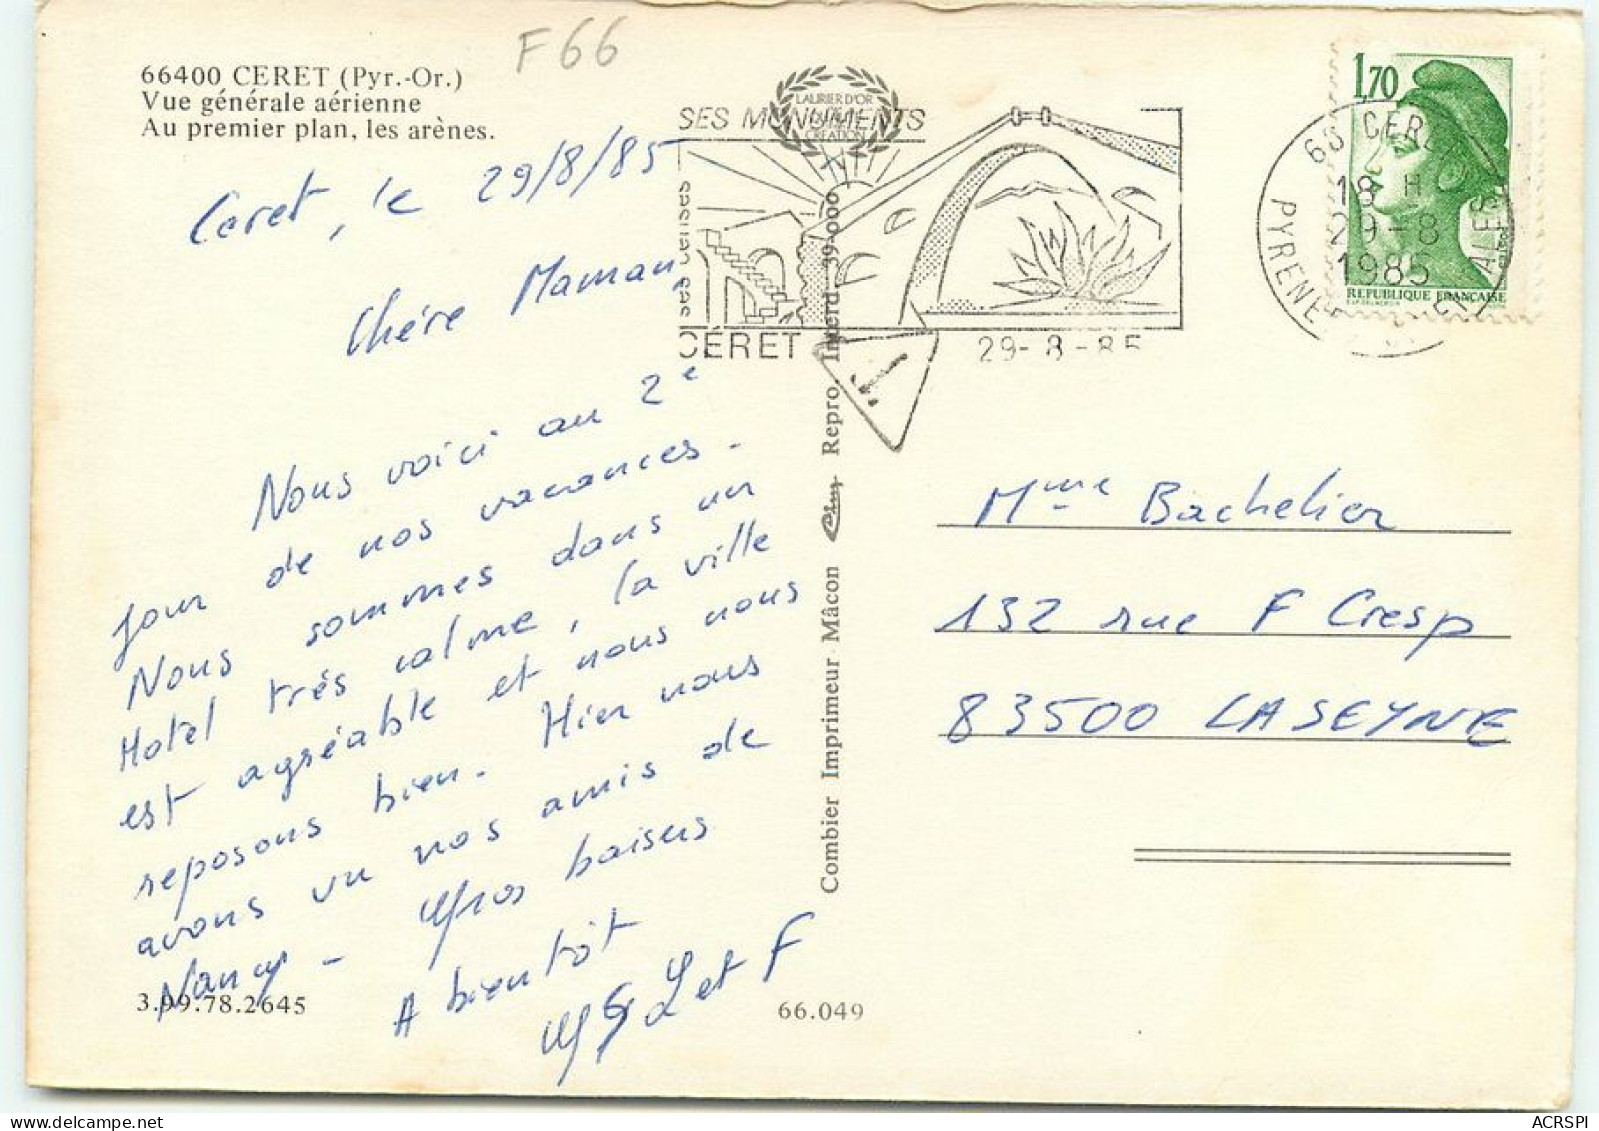 F66
66400 CERET (Pyr.-Or.)
Vue générale aérienne
Au premier plan, les arènes.
Ceret, le 29/8/85
Chére Maman,
Nous voici au 2e
jour de nos vacances.
Nous sommes dans un
Hotel très calme, la ville
est agréable et nous nous
reposons bien. Hier nous
avons vu nos amis de
Nancy - Gros baisers
A bientôt
L et F
3.99.78.2645
66.049
Combier Imprimeur Mâcon
Repro. Interd. 39-000
SES MONUMENTS
LAURIER D'OR
CREATION
ses
CÉRET
29-8-85
66 CERET
18 H
29-8
1985
PYRENEES ORIENTALES
1,70
REPUBLIQUE FRANÇAISE
Mme Bachelier
132 rue F Cresp
83500 LA SEYNE
ACRSPI